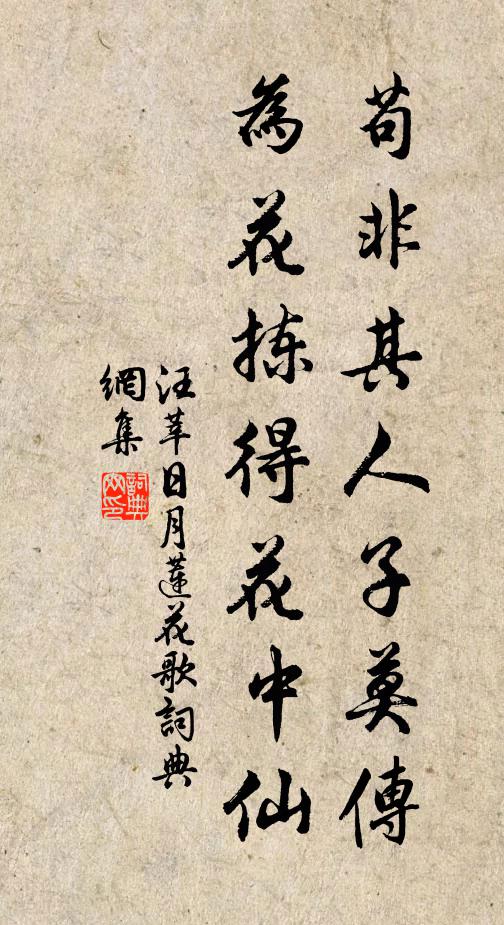 苟非其人子莫傳
為花揀得花中仙
汪莘日月蓮花歌詞典
網集
詞典網印